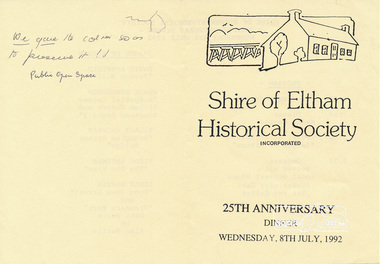 We gave the
to preserve it !!
Public Open Space
Shire of Eltham
Historical Society
INCORPORATED
25TH ANNIVERSARY
DINNER
WEDNESDAY, 8TH JULY, 1992